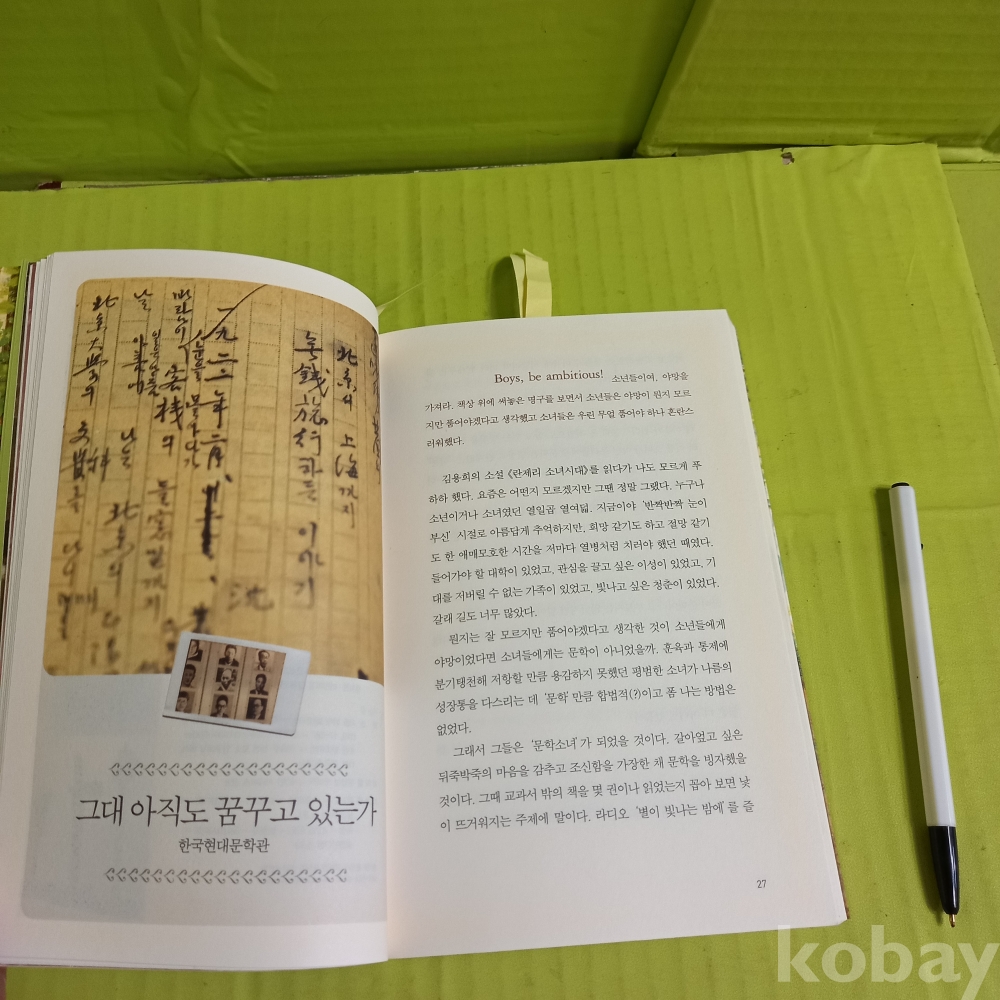 北京서 上海까지
無錢旅行하든 이야기
一九二二年二月
그대 아직도 꿈꾸고 있는가
한국현대문학관
Boys, be ambitious! 소년들이여, 야망을
가져라. 책상 위에 써놓은 명구를 보면서 소년들은 야망이 뭔지 모르
지만 품어야겠다고 생각했고 소녀들은 우린 무얼 품어야 하나 혼란스
러워했다.
김용희의 소설 《란제리 소녀시대》를 읽다가 나도 모르게 푸
하하 했다. 요즘은 어떤지 모르겠지만 그땐 정말 그랬다. 누구나
소년이거나 소녀였던 열일곱 열여덟. 지금이야 ‘반짝반짝 눈이
부신’ 시절로 아름답게 추억하지만, 희망 같기도 하고 절망 같기
도 한 애매모호한 시간을 저마다 열병처럼 치러야 했던 때였다.
들어가야 할 대학이 있었고, 관심을 끌고 싶은 이성이 있었고, 기
대를 저버릴 수 없는 가족이 있었고, 빛나고 싶은 청춘이 있었다.
갈래 길도 너무 많았다.
뭔지는 잘 모르지만 품어야겠다고 생각한 것이 소년들에게
야망이었다면 소녀들에게는 문학이 아니었을까. 훈육과 통제에
분기탱천해 저항할 만큼 용감하지 못했던 평범한 소녀가 나름의
성장통을 다스리는 데 ‘문학’ 만큼 합법적(?)이고 폼 나는 방법은
없었다.
그래서 그들은 ‘문학소녀’가 되었을 것이다. 갈아엎고 싶은
뒤죽박죽의 마음을 감추고 조신함을 가장한 채 문학을 빙자했을
것이다. 그때 교과서 밖의 책을 몇 권이나 읽었는지 꼽아 보면 낯
이 뜨거워지는 주제에 말이다. 라디오 ‘별이 빛나는 밤에’를 즐
27
kobay